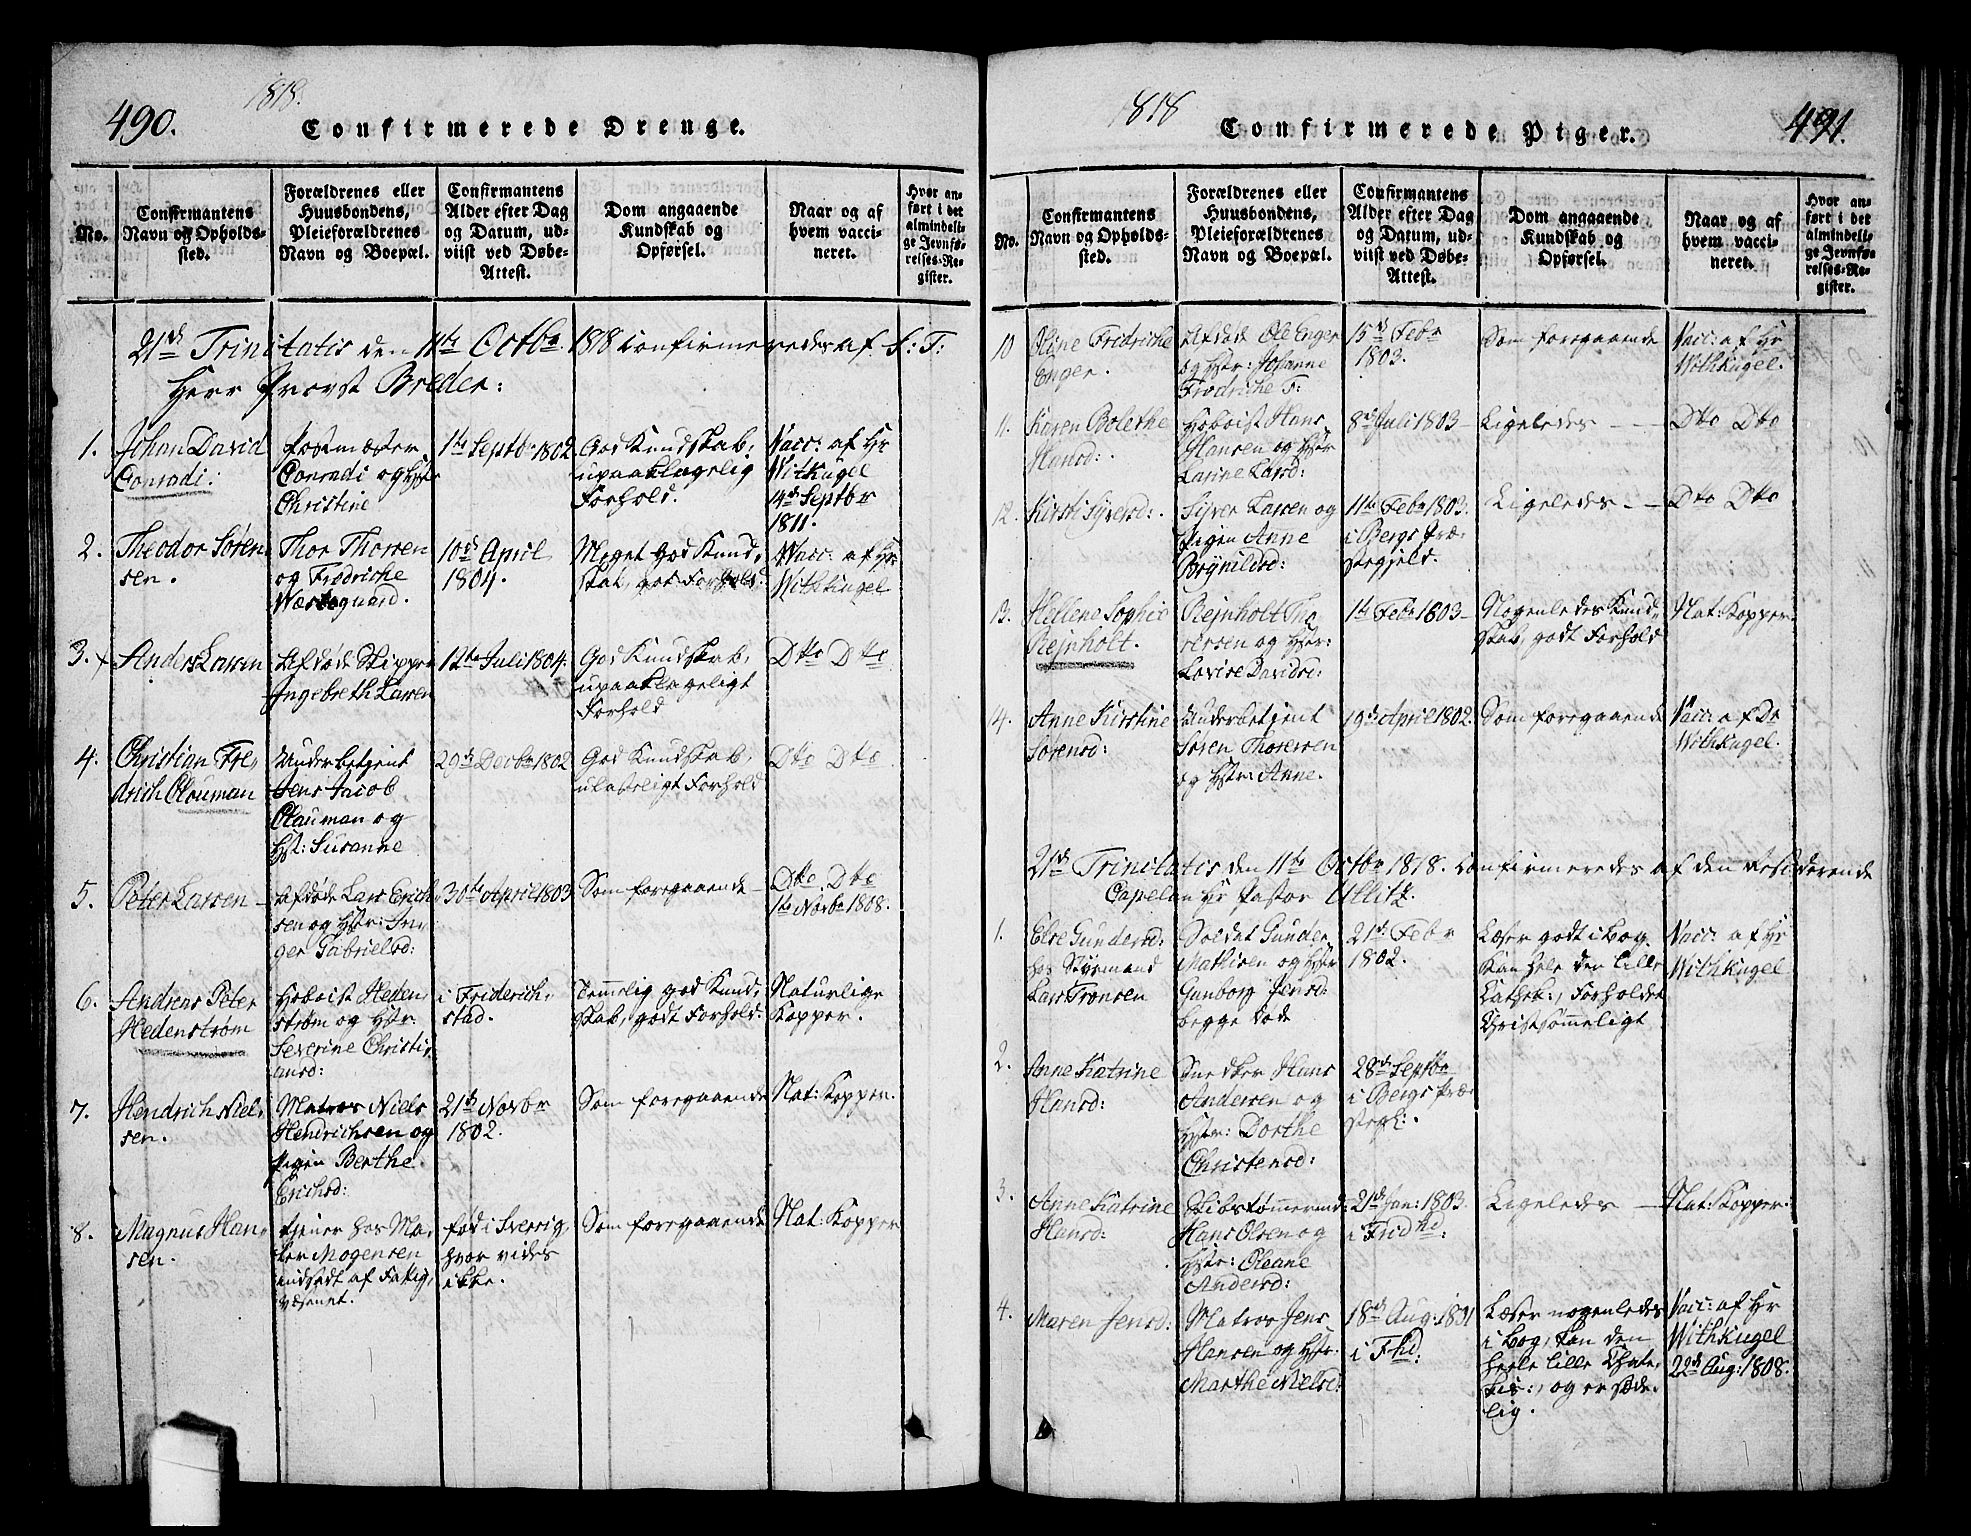 490.
1818.
Confirmerede Drenge.
No.
Confirmantens
Navn og Opholds-
sted.
Forældrenes eller
Huusbondens,
Pleieforældrenes
Navn og Boepæl.
Confirmantens
Alder efter Dag
og Datum, ud-
viist ved Døbe-
Attest.
Dom angaaende
Kundskab og
Opførsel.
Naar og af
hvem vacci-
neret.
Hvor an-
ført i det
almindeli-
ge Jevnfø-
relses-Re-
gister.
21de Trinitatis den 11te Octbr 1818 confirmeredes af S: T:
Herr Provst Breder:
1.
Johan David
Conradi:
Postmester
Conradi og Hstr
Christine
1te Septbr 1802
God Kundskab,
upaaklagelig
Forhold.
Vacc: af Hr
Withkugel
14de Septbr
1811.
2.
Theodor Søren-
sen.
Thor Thorsen
og Fredriche
Wæstgaard.
10de April
1804.
Meget god Kund-
skab, god Forhold:
Vacc: af Hr
Withkugel
3.
Anders Larsen
Afdøde Skipper
Ingebreth Larsen
12te Juli 1804.
God Kundskab,
upaaklageligt
Forhold
Dto Dto
4.
Christian Fre-
drich Clauman
Underbetjent
Jens Jacob
Clauman og
Hst: Susanne
29de Decbr 1802
God Kundskab,
ulasteligt Forhold
Dto Dto
5.
Peter Larsen
Afdøde Lars Erich-
sen og Hstr: In-
ger Gabrielsd:
30te April 1803
Som foregaaende
Dto. Dto
1te Novbr 1808.
6.
Andreas Peter
Hedenstrøm
Hoboist Heden-
strøm og Hstr:
Severine Christi-
ansd:
i Friderich-
stad.
Temmelig god Kund-
skab, godt Forhold.
Naturlige
Kopper.
7.
Hendrich Niel-
sen.
Matros Niels
Hendrichsen og
Pigen Berthe
Erichsd:
21de Novbr
1802.
Som foregaaende
Nat: Kopper.
8.
Magnus Han-
sen.
tjener hos Ma-
ler Mogensen
indsadt af Fattig-
væsenet.
født i Sverrig,
hvor vides
ikke.
Som foregaaende
Nat: Kopper
1818
Confirmerede Piger.
491.
No.
Confirmantens
Navn og Opholds-
sted.
Forældrenes eller
Huusbondens,
Pleieforældrenes
Navn og Boepæl.
Confirmantens
Alder efter Dag
og Datum, ud-
viist ved Døbe-
Attest.
Dom angaaende
Kundskab og
Opførsel.
Naar og af
hvem vacci-
neret.
Hvor an-
ført i det
almindeli-
ge Jevnfø-
relses-Re-
gister.
10
Oline Fredriche
Enger.
Afdøde Ole Enger
og Hstr: Johanne
Fredriche F:
15de Febr
1803.
Som foregaaende
Vacc: af Hr
Withkugel.
11.
Karen Bolethe
Hansd:
Hoboist Hans
Hansen og Hstr
Larine Larsd:
8de Juli 1803
Ligeledes
Dto Dto
12.
Kirsti Syversd:
Syver Larsen og
Pigen Anne
Brynildsd:
11te Febr 1803.
i Bergs Præ-
stegjeld.
Ligeledes
Dto Dto
13.
Hellene Sophie
Rejnholt.
Rejnholt Tho-
ersen og Hstr:
Lovise Davidsd:
1te Febr 1803
Nogenledes Kund-
skab godt Forhold
Nat: Kopper.
4.
Anne Kirstine
Sørensd:
Underbetjent
Søren Thoresen
og Hstr: Anne.
19de April 1802.
Som foregaaende
Vacc: af Do
Withkugel.
21de Trinitatis den 11te Octbr 1818. confirmeredes af den residerende
Capelan Hr Pastor Ullitz.
1.
Else Gundersd:
hos Styrmand
Lars Tronsen
Soldat Gunder
Mathisen og Hstr
Gunborg Jensd:
begge døde
21de Febr
1802.
Læser godt i Bog
kan hele den lille
Cathek:, Forholdet
Christsømmeligt
Vacc: af Hr
Withkugel
2.
Anne Katrine
Hansd:
Snedker Hans
Andersen og
Hstr: Dorthe
Christensd:
28de Septbr
i Bergs Præ-
stegj:.
3.
Anne Katrine
Hansd:
Skibstømmermd
Hans Olsen og
Hstr: Oleane
Andersd:
21de Jan: 1803.
i Fridhd:
Ligeledes
Nat: Kopper.
4.
Maren Jensd:
Matros Jens
Hansen og Hstr:
Marthe Nielsd:
18de Aug: 1801
i Fhd:
Læser nogenledes
i Bog, kan den
heele lille Chate-
kis:, og er sæde-
lig.
Vacc: af Hr
Withkugel
22de Aug: 1808.